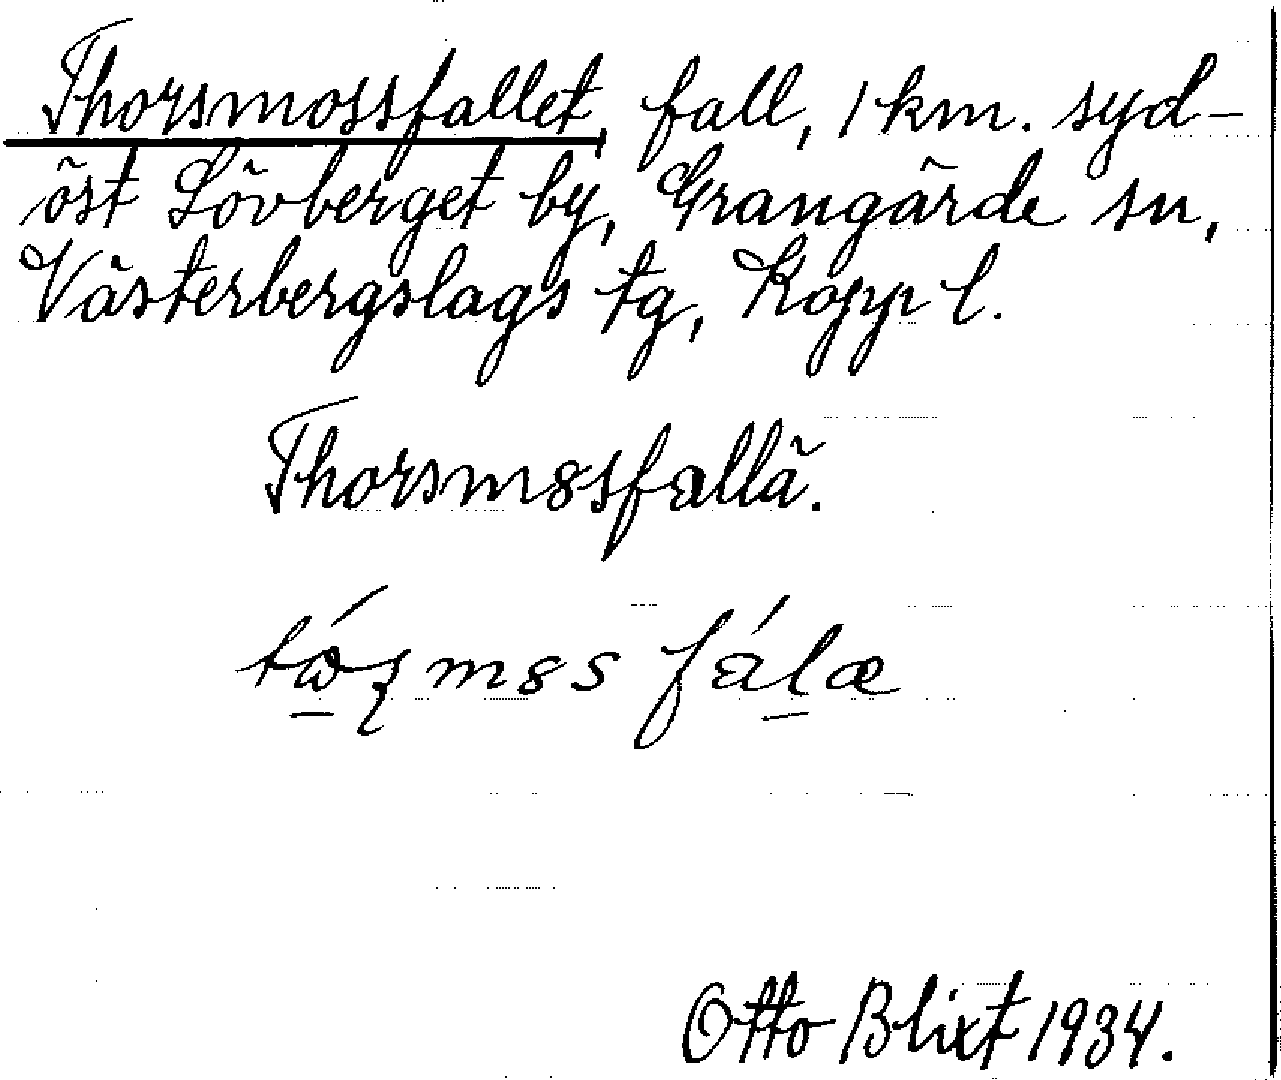 Thorsmossfallet, fall, 1 km. syd-
öst Lövberget by, Grangärde sn,
Västerbergslags tg, Kopp l.
Thorsm8sfallä.
Otto Blixt 1934.